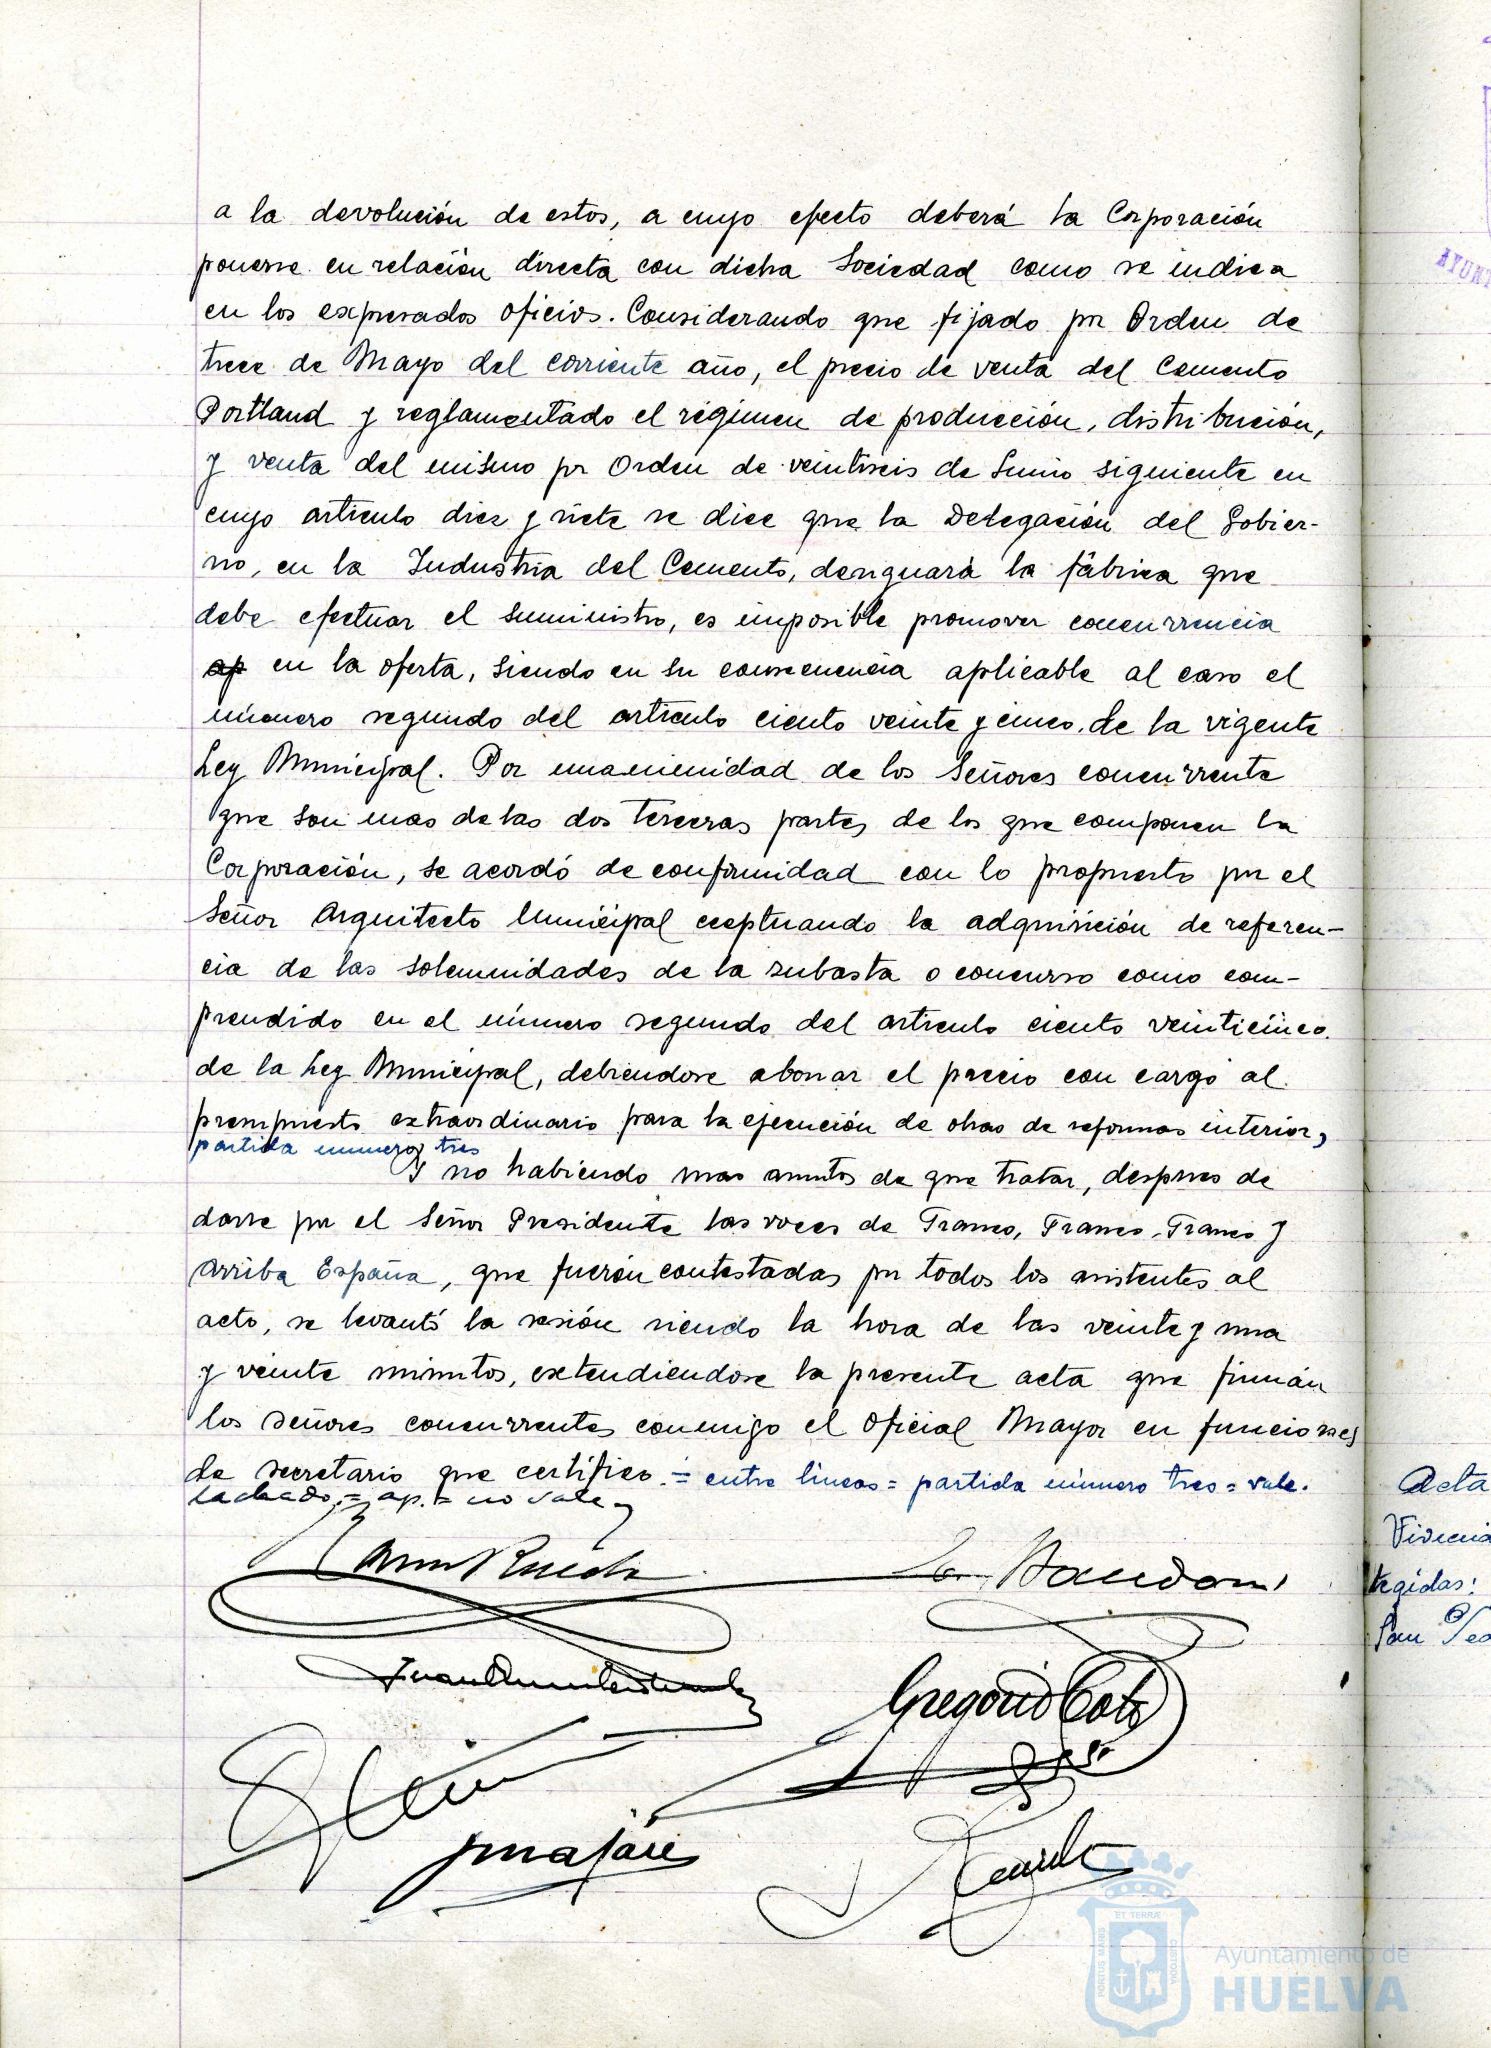 a la devolución de estos, a cuyo efecto deberá la Corporación
ponerse en relación directa con dicha Sociedad como se indica
en los expresados oficios. Considerando que fijado por Orden de
trece de Mayo del corriente año, el precio de venta del Cemento
Portland y reglamentado el régimen de producción, distribución,
y venta del mismo por Orden de veintiseis de Junio siguiente en
cuyo artículo diez y siete se dice que la Delegación del Gobier-
no, en la Industria del Cemento, designará la fábrica que
debe efectuar el suministro, es imposible promover concurrencia
ap en la oferta, siendo en su consecuencia aplicable al caso el
número segundo del artículo ciento veinte y cinco de la vigente
Ley Municipal. Por unanimidad de los Señores concurrente
que son mas de las dos terceras partes de los que componen la
Corporación, se acordó de conformidad con lo propuesto por el
Señor Arquitecto Municipal exeptuando la adquisición de referen-
cia de las solemnidades de la subasta o concurso como com-
prendido en el número segundo del artículo ciento veinticinco
de la Ley Municipal, debiendose abonar el precio con cargo al
presupuesto extraordinario para la ejecución de obras de reformas interior,
partida numero tres
Y no habiendo mas asuntos de que tratar, despues de
darse por el Señor Presidente las voces de Franco, Franco, Franco y
Arriba España, que fuerón contestadas por todos los asistentes al
acto, se levantó la sesión siendo la hora de las veinte y una
y veinte minutos, extendiendose la presente acta que firmán
los señores concurrentes conmigo el Oficial Mayor en funciones
de secretario que certifico.= entre lineas = partida número tres = vale.
tachado = ap. = no vale
Gregorio
Acta
Vivencia
tegidas:
San Ped
AYUNT
PORTUS MARIS
ET TERRÆ
CUSTODIA
Ayuntamiento de
HUELVA